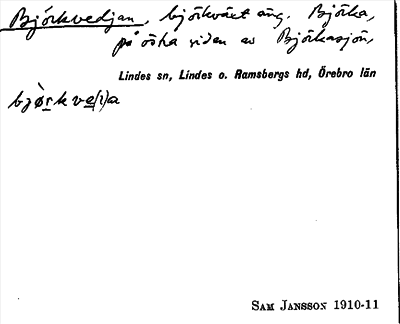 Björkvedjan, björkväxt äng. Björka,
på östra sidan av Björkasjön,
Lindes sn, Lindes o. Ramsbergs hd, Örebro län
bjørkve(i)a
SAM JANSSON 1910-11